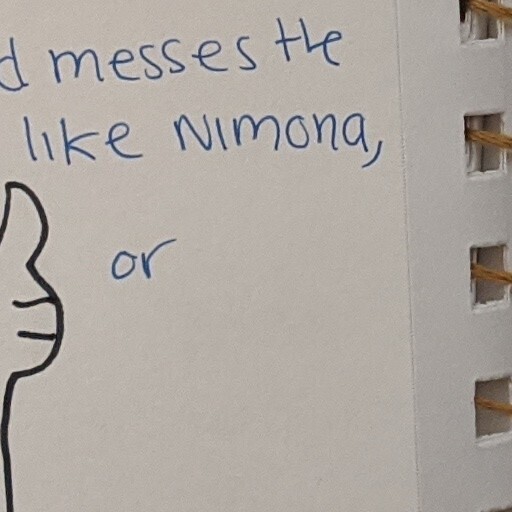 d messes the
like Nimona,
or